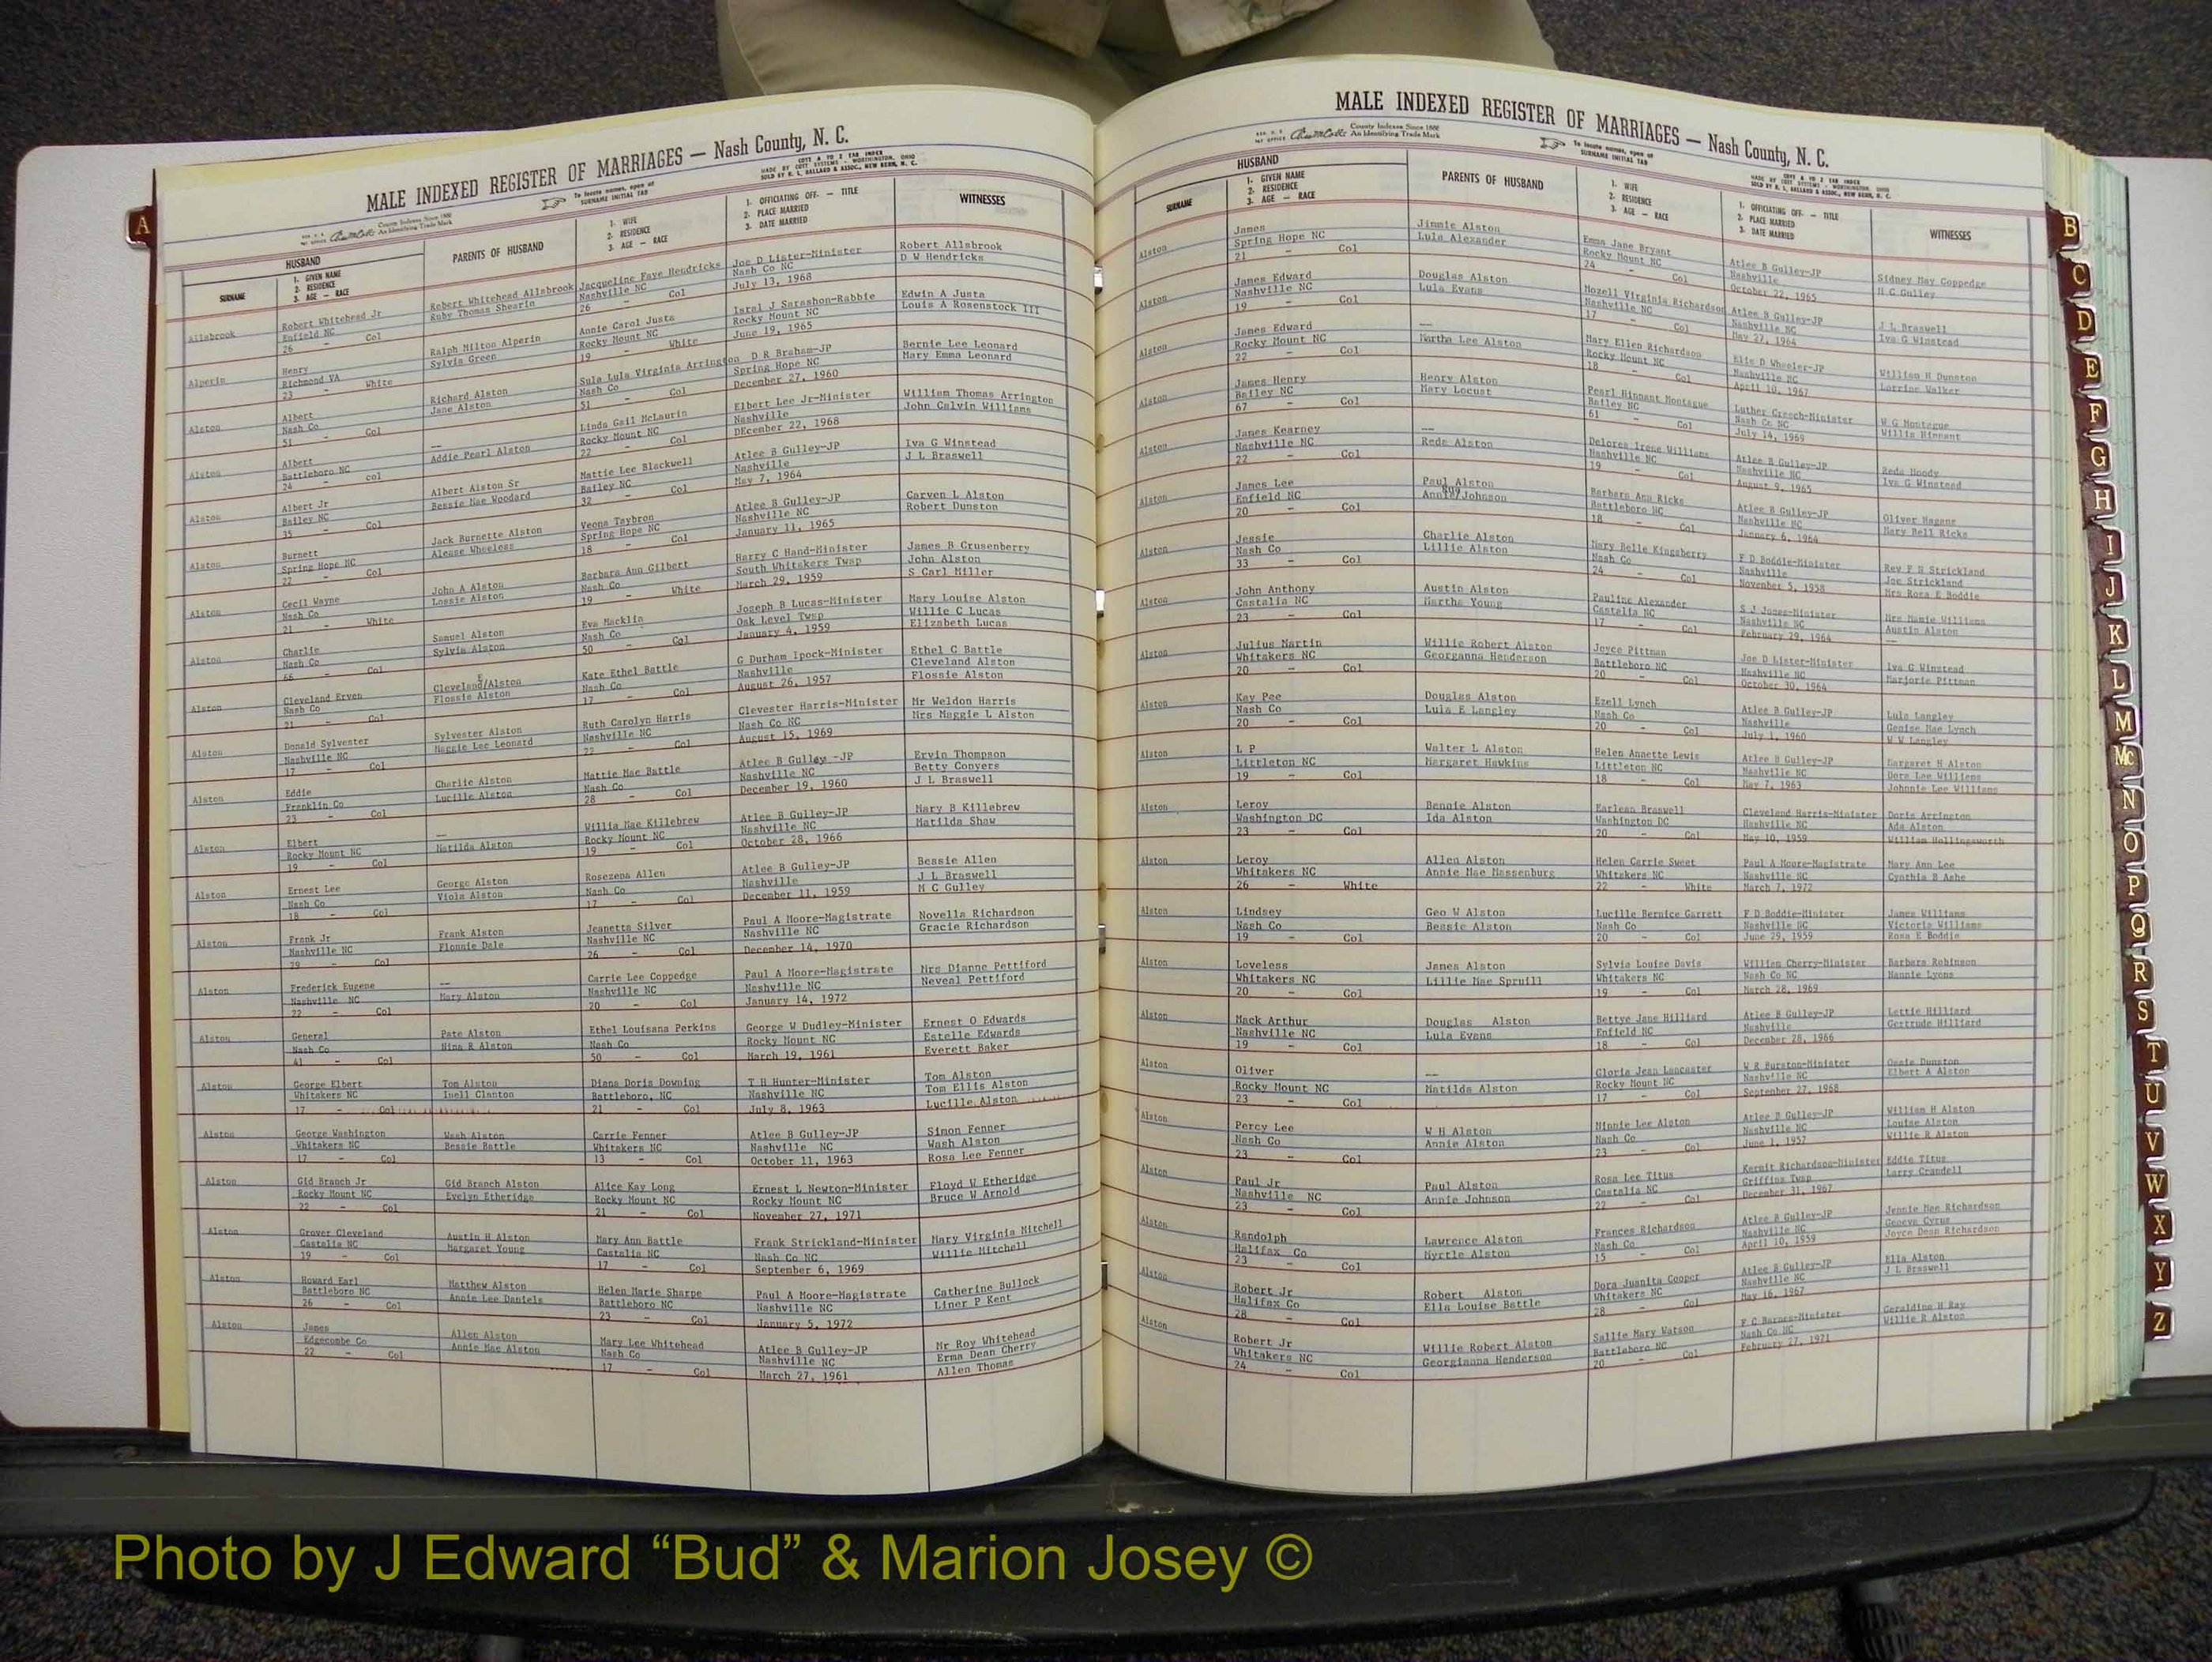 MALE INDEXED REGISTER OF MARRIAGES — Nash County, N. C.
County Indexes Since 1888
An Identifying Trade Mark
To locate names, open at
SURNAME INITIAL TAB
COTT A TO Z TAB INDEX
MADE BY COTT SYSTEMS - WORTHINGTON, OHIO
SOLD BY R. L. BALLARD & ASSOC., NEW BERN, N. C.
HUSBAND
SURNAME
1. GIVEN NAME
2. RESIDENCE
3. AGE — RACE
PARENTS OF HUSBAND
1. WIFE
2. RESIDENCE
3. AGE — RACE
1. OFFICIATING OFF. — TITLE
2. PLACE MARRIED
3. DATE MARRIED
WITNESSES
Allsbrook Robert Whitehead Jr Robert Whitehead Allsbrook Jacqueline Faye Hendricks Joe D Lister-Minister Robert Allsbrook
Enfield NC Ruby Thomas Shearin Nashville NC Nash Co NC D W Hendricks
26 - Col 26 - Col July 13, 1968
Alperin Henry Ralph Milton Alperin Annie Carol Justa Isral J Sarashon-Rabbie Edwin A Justa
Richmond VA Sylvia Green Rocky Mount NC Rocky Mount NC Louis A Rosenstock III
23 - White 19 - White June 19, 1965
Alston Albert Richard Alston Sula Lula Virginia Arrington D R Braham-JP Bernie Lee Leonard
Nash Co Jane Alston Nash Co Spring Hope NC Mary Emma Leonard
51 - Col 51 - Col December 27, 1960
Alston Albert — Linda Gail McLaurin Elbert Lee Jr-Minister William Thomas Arrington
Battleboro NC Addie Pearl Alston Rocky Mount NC Nashville John Calvin Williams
24 - col 22 - Col DEcember 22, 1968
Alston Albert Jr Albert Alston Sr Mattie Lee Blackwell Atlee B Gulley-JP Iva G Winstead
Bailey NC Bessie Mae Woodard Bailey NC Nashville J L Braswell
35 - Col 32 - Col May 7, 1964
Alston Burnett Jack Burnette Alston Veona Taybron Atlee B Gulley-JP Carven L Alston
Spring Hope NC Alease Wheeless Spring Hope NC Nashville NC Robert Dunston
22 - Col 18 - Col January 11, 1965
Alston Cecil Wayne John A Alston Barbara Ann Gilbert Harry C Hand-Minister James B Crusenberry
Nash Co Lossie Alston Nash Co South Whitakers Twsp John Alston
21 - White 19 - White March 29, 1959 S Carl Miller
Alston Charlie Samuel Alston Eva Macklin Joseph B Lucas-Minister Mary Louise Alston
Nash Co Sylvia Alston Nash Co Oak Level Twsp Willie C Lucas
66 - Col 50 - Col January 4, 1959 Elizabeth Lucas
Alston Cleveland Erven Cleveland/Alston Kate Ethel Battle G Durham Ipock-Minister Ethel C Battle
Nash Co Flossie Alston Nash Co Nashville Cleveland Alston
21 - Col 17 - Col August 26, 1957 Flossie Alston
Alston Donald Sylvester Sylvester Alston Ruth Carolyn Harris Clevester Harris-Minister Mr Weldon Harris
Nashville NC Maggie Lee Leonard Nashville NC Nash Co NC Mrs Maggie L Alston
17 - Col 22 - Col August 15, 1969
Alston Eddie Charlie Alston Mattie Mae Battle Atlee B Gulley -JP Ervin Thompson
Franklin Co Lucille Alston Nash Co Nashville NC Betty Conyers
23 - Col 28 - Col December 19, 1960 J L Braswell
Alston Elbert — Willia Mae Killebrew Atlee B Gulley-JP Mary B Killebrew
Rocky Mount NC Matilda Alston Rocky Mount NC Nashville NC Matilda Shaw
19 - Col 19 - Col October 28, 1966
Alston Ernest Lee George Alston Rosezena Allen Atlee B Gulley-JP Bessie Allen
Nash Co Viola Alston Nash Co Nashville J L Braswell
18 - Col 17 - Col December 11, 1959 M C Gulley
Alston Frank Jr Frank Alston Jeanetta Silver Paul A Moore-Magistrate Novella Richardson
Nashville NC Flonnie Dale Nashville NC Nashville NC Gracie Richardson
29 - Col 26 - Col December 14, 1970
Alston Frederick Eugene — Carrie Lee Coppedge Paul A Moore-Magistrate Mrs Dianne Pettiford
Nashville NC Mary Alston Nashville NC Nashville NC Neveal Pettiford
22 - Col 20 - Col January 14, 1972
Alston General Pate Alston Ethel Louisana Perkins George W Dudley-Minister Ernest O Edwards
Nash Co Nina R Alston Nash Co Rocky Mount NC Estelle Edwards
41 - Col 50 - Col March 19, 1961 Everett Baker
Alston George Elbert Tom Alston Diana Doris Downing T H Hunter-Minister Tom Alston
Whitakers NC Inell Clanton Battleboro, NC Nashville NC Tom Ellis Alston
17 - Col 21 - Col July 8, 1963 Lucille Alston
Alston George Washington Wash Alston Carrie Fenner Atlee B Gulley-JP Simon Fenner
Whitakers NC Bessie Battle Whitakers NC Nashville NC Wash Alston
17 - Col 13 - Col October 11, 1963 Rosa Lee Fenner
Alston Gid Branch Jr Gid Branch Alston Alice Kay Long Ernest L Newton-Minister Floyd W Etheridge
Rocky Mount NC Evelyn Etheridge Rocky Mount NC Rocky Mount NC Bruce W Arnold
22 - Col 21 - Col November 27, 1971
Alston Grover Cleveland Austin H Alston Mary Ann Battle Frank Strickland-Minister Mary Virginia Mitchell
Castalia NC Margaret Young Castalia NC Nash Co NC Willie Mitchell
19 - Col 17 - Col September 6, 1969
Alston Howard Earl Matthew Alston Helen Marie Sharpe Paul A Moore-Magistrate Catherine Bullock
Battleboro NC Annie Lee Daniels Battleboro NC Nashville NC Liner P Kent
26 - Col 23 - Col January 5, 1972
Alston James Allen Alston Mary Lee Whitehead Atlee B Gulley-JP Mr Roy Whitehead
Edgecombe Co Annie Mae Alston Nash Co Nashville NC Erma Dean Cherry
22 - Col 17 - Col March 27, 1961 Allen Thomas
A
MALE INDEXED REGISTER OF MARRIAGES — Nash County, N. C.
County Indexes Since 1888
An Identifying Trade Mark
To locate names, open at
SURNAME INITIAL TAB
COTT A TO Z TAB INDEX
MADE BY COTT SYSTEMS - WORTHINGTON, OHIO
SOLD BY R. L. BALLARD & ASSOC., NEW BERN, N. C.
HUSBAND
SURNAME
1. GIVEN NAME
2. RESIDENCE
3. AGE — RACE
PARENTS OF HUSBAND
1. WIFE
2. RESIDENCE
3. AGE — RACE
1. OFFICIATING OFF. — TITLE
2. PLACE MARRIED
3. DATE MARRIED
WITNESSES
Alston James Jimmie Alston Emma Jane Bryant Atlee B Gulley-JP Sidney May Coppedge
Spring Hope NC Lula Alexander Rocky Mount NC Nashville M C Gulley
21 - Col 24 - Col October 22, 1965
Alston James Edward Douglas Alston Mozell Virginia Richardson Atlee B Gulley-JP J L Braswell
Nashville NC Lula Evans Nashville NC Nashville NC Iva G Winstead
19 - Col 17 - Col May 27, 1964
Alston James Edward — Mary Ellen Richardson Elis D Wheeler-JP William H Dunston
Rocky Mount NC Martha Lee Alston Rocky Mount NC Nashville NC Lorrine Walker
22 - Col 18 - Col April 10, 1967
Alston James Henry Henry Alston Pearl Hinnant Montague Luther Creech-Minister W G Montague
Bailey NC Mary Locust Bailey NC Nash Co NC Willis Hinnant
67 - Col 61 - Col July 14, 1969
Alston James Kearney — Delores Irene Williams Atlee B Gulley-JP Reda Moody
Nashville NC Reda Alston Nashville NC Nashville NC Iva G Winstead
22 - Col 19 - Col August 9, 1965
Alston James Lee Paul Alston Barbara Ann Ricks Atlee B Gulley-JP Oliver Hagans
Enfield NC Annie/Johnson Battleboro NC Nashville NC Mary Bell Ricks
20 - Col 18 - Col January 6, 1964
Alston Jessie Charlie Alston Mary Belle Kingsberry F D Boddie-Minister Rev F H Strickland
Nash Co Lillie Alston Nash Co Nashville Joe Strickland
33 - Col 24 - Col November 5, 1958 Mrs Rosa E Boddie
Alston John Anthony Austin Alston Pauline Alexander S J Jones-Minister Mrs Mamie Williams
Castalia NC Martha Young Castalia NC Nashville NC Austin Alston
23 - Col 17 - Col February 29, 1964 —
Alston Julius Martin Willie Robert Alston Joyce Pittman Joe D Lister-Minister Iva G Winstead
Whitakers NC Georganna Henderson Battleboro NC Nashville NC Marjorie Pittman
20 - Col 20 - Col October 30, 1964
Alston Kay Pee Douglas Alston Ezell Lynch Atlee B Gulley-JP Lula Langley
Nash Co Lula E Langley Nash Co Nashville Genise Mae Lynch
20 - Col 20 - Col July 1, 1960 W W Langley
Alston L P Walter L Alston Helen Annette Lewis Atlee B Gulley-JP Margaret H Alston
Littleton NC Margaret Hawkins Littleton NC Nashville NC Dora Lee Williams
19 - Col 18 - Col May 7, 1963 Johnnie Lee Williams
Alston Leroy Bennie Alston Earlean Braswell Cleveland Harris-Minister Doris Arrington
Washington DC Ida Alston Washington DC Nashville NC Ada Alston
23 - Col 20 - Col May 10, 1959 William Hollingsworth
Alston Leroy Allen Alston Helen Carrie Sweet Paul A Moore-Magistrate Mary Ann Lee
Whitakers NC Annie Mae Massenburg Whitakers NC Nashville NC Cynthia B Ashe
26 - White 22 - White March 7, 1972
Alston Lindsey Geo W Alston Lucille Bernice Garrett F D Boddie-Minister James Williams
Nash Co Bessie Alston Nash Co Nashville NC Victoria Williams
19 - Col 20 - Col June 29, 1959 Rosa E Boddie
Alston Loveless James Alston Sylvia Louise Davis William Cherry-Minister Barbara Robinson
Whitakers NC Lillie Mae Spruill Whitakers NC Nash Co NC Nannie Lyons
20 - Col 19 - Col March 28, 1969
Alston Mack Arthur Douglas Alston Bettye Jane Hilliard Atlee B Gulley-JP Lettie Hilliard
Nashville NC Lula Evans Enfield NC Nashville Gertrude Hilliard
19 - Col 18 - Col December 28, 1966
Alston Oliver — Gloria Jean Lancaster W R Burston-Minister Ossie Dunston
Rocky Mount NC Matilda Alston Rocky Mount NC Nashville NC Elbert A Alston
23 - Col 17 - Col September 27, 1968
Alston Percy Lee W H Alston Minnie Lee Alston Atlee B Gulley-JP William H Alston
Nash Co Annie Alston Nash Co Nashville NC Louise Alston
23 - Col 23 - Col June 1, 1957 Willie R Alston
Alston Paul Jr Paul Alston Rosa Lee Titus Kermit Richardson-Minister Eddie Titus
Nashville NC Annie Johnson Castalia NC Griffins Twsp Larry Crandell
23 - Col 22 - Col December 31, 1967
Alston Randolph Lawrence Alston Frances Richardson Atlee B Gulley-JP Jennie Mae Richardson
Halifax Co Myrtle Alston Nash Co Nashville NC Geneva Cyrus
23 - Col 15 - Col April 10, 1959 Joyce Dean Richardson
Alston Robert Jr Robert Alston Dora Juanita Cooper Atlee B Gulley-JP Ella Alston
Halifax Co Ella Louise Battle Whitakers NC Nashville NC J L Braswell
28 - Col 28 - Col May 16, 1967
Alston Robert Jr Willie Robert Alston Sallie Mary Watson F C Barnes-Minister Geraldine H Ray
Whitakers NC Georgianna Henderson Battleboro NC Nash Co NC Willie R Alston
24 - Col 20 - Col February 27, 1971
B
C
D
E
F
G
H
I
J
K
L
M
Mc
N
O
P
Q
R
S
T
U
V
W
X
Y
Z
Photo by J Edward “Bud” & Marion Josey ©